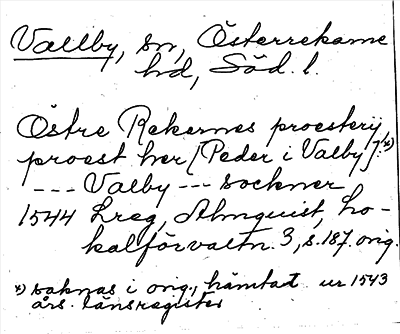 Vallby, sn, Österrekarne
hd, Söd. l.
Östre Rekernes proesterij
proest her [Peder i Valby]! *)
--- Valby --- sockner
1544 Lreg, Almquist, Lo-
kalförvaltn. 3, s. 187. orig.
*) saknas i orig., hämtat ur 1543
års länsregister